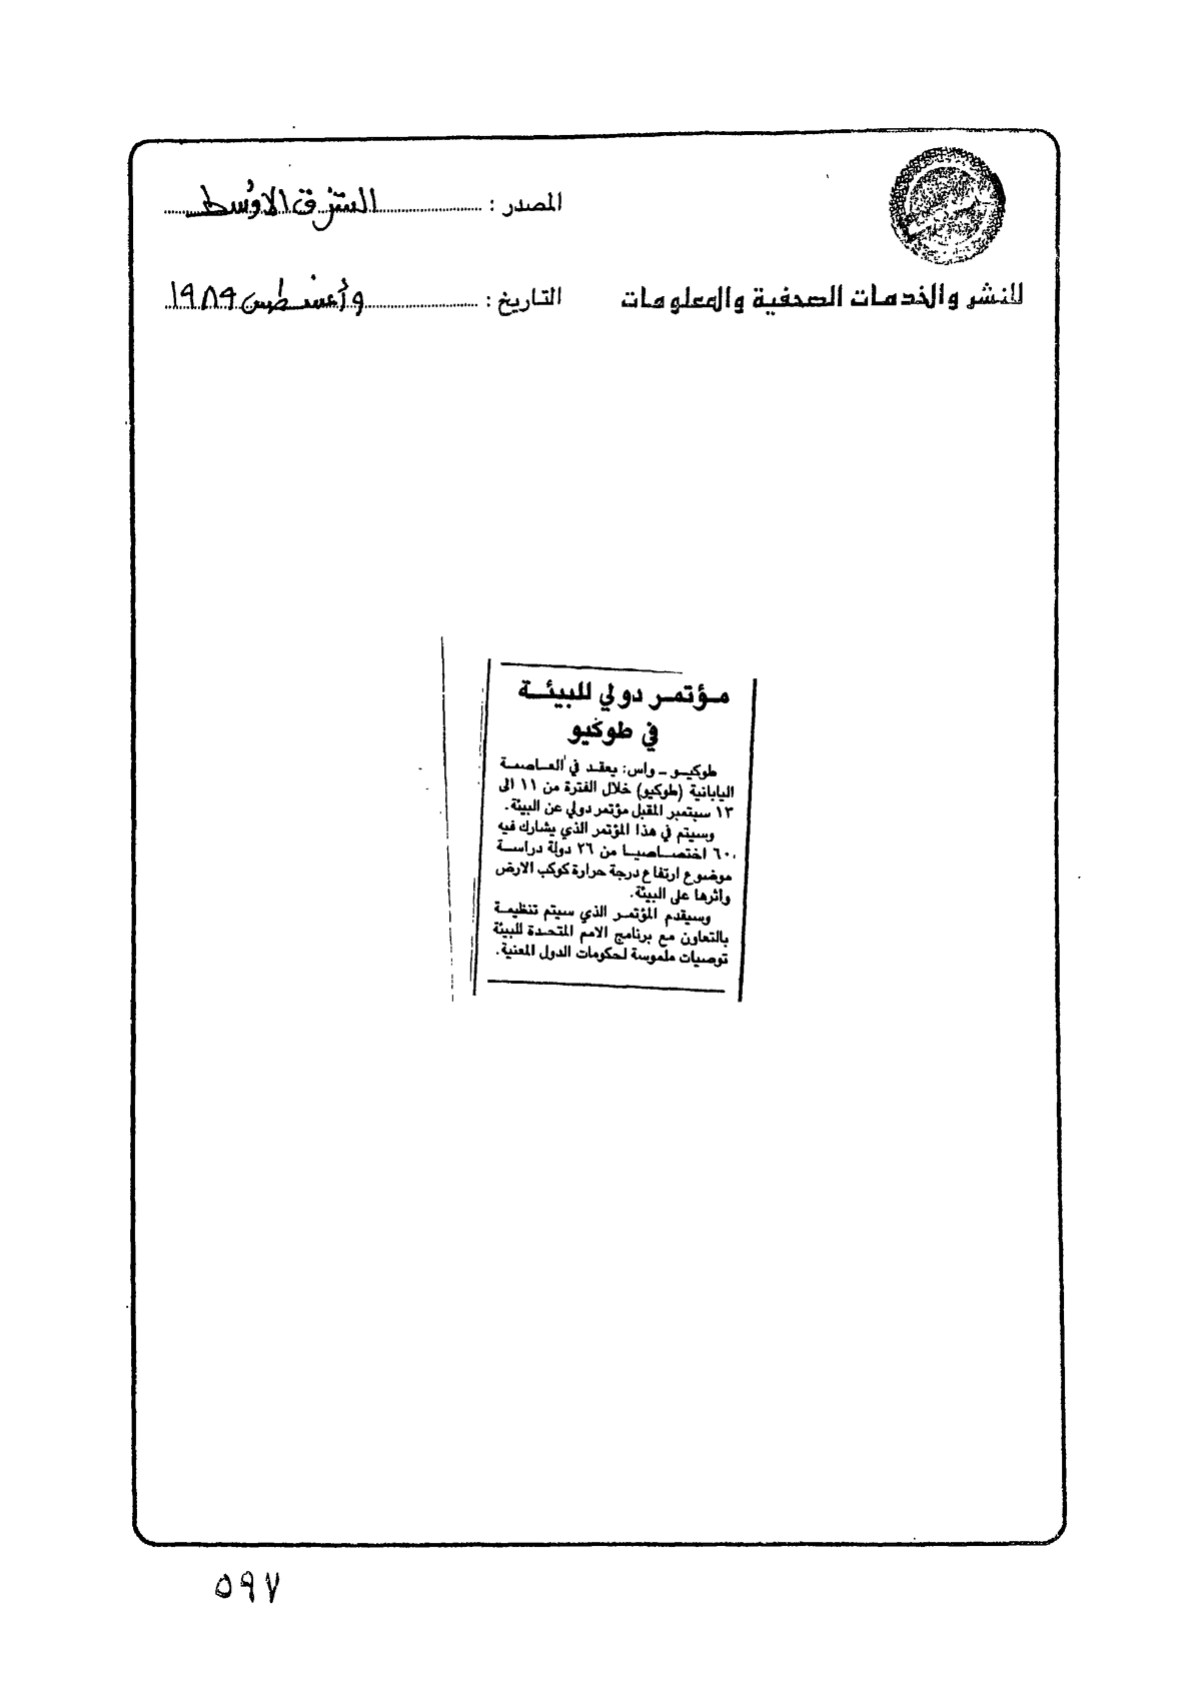 المصدر : الشرق الاوسط
للنشر والخدمات الصحفية والمعلومات
التاريخ : ٩ أغسطس ١٩٨٩
مـؤتمـر دولي للبيئـة
في طوكيو
طوكيـو ـ واس: يعقـد في العـاصمـة
اليابانية (طوكيو) خلال الفترة من ١١ الى
١٣ سبتمبر المقبل مؤتمر دولي عن البيئة.
وسيتم في هذا المؤتمر الذي يشارك فيه
٦٠ اختصـاصيـا من ٢٦ دولة دراسـة
موضوع ارتفاع درجة حرارة كوكب الارض
واثرها على البيئة.
وسيقدم المؤتمـر الذي سيتم تنظيمـة
بالتعاون مع برنامج الامم المتحـدة للبيئة
توصيات ملموسة لحكومات الدول المعنية.
٥٩٧